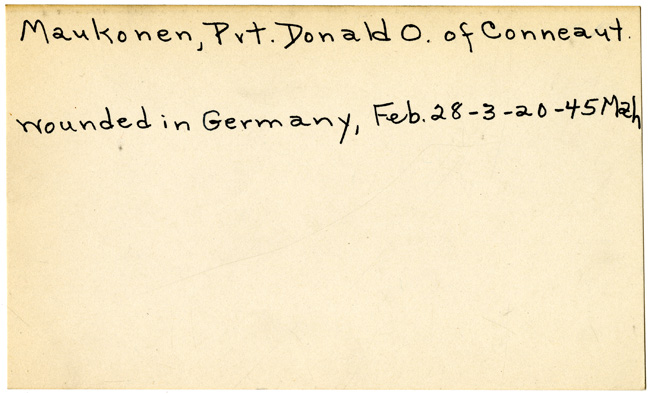 Maukonen, Pvt. Donald O. of Conneaut.
wounded in Germany, Feb. 28-3-20-45 Mah